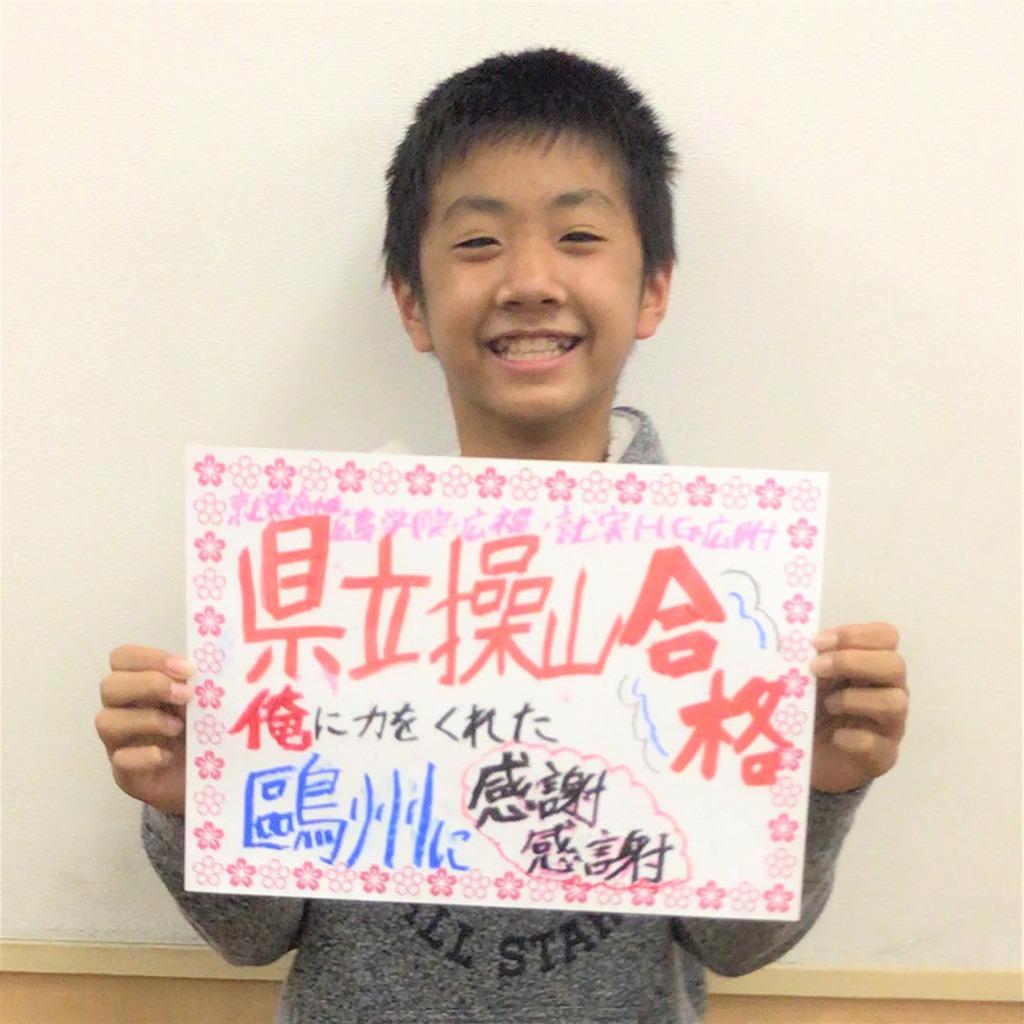 広島学院・広大福山・就実HG広附
県立操山合格
俺に力をくれた
鷗州に感謝
感謝
ALL STAR